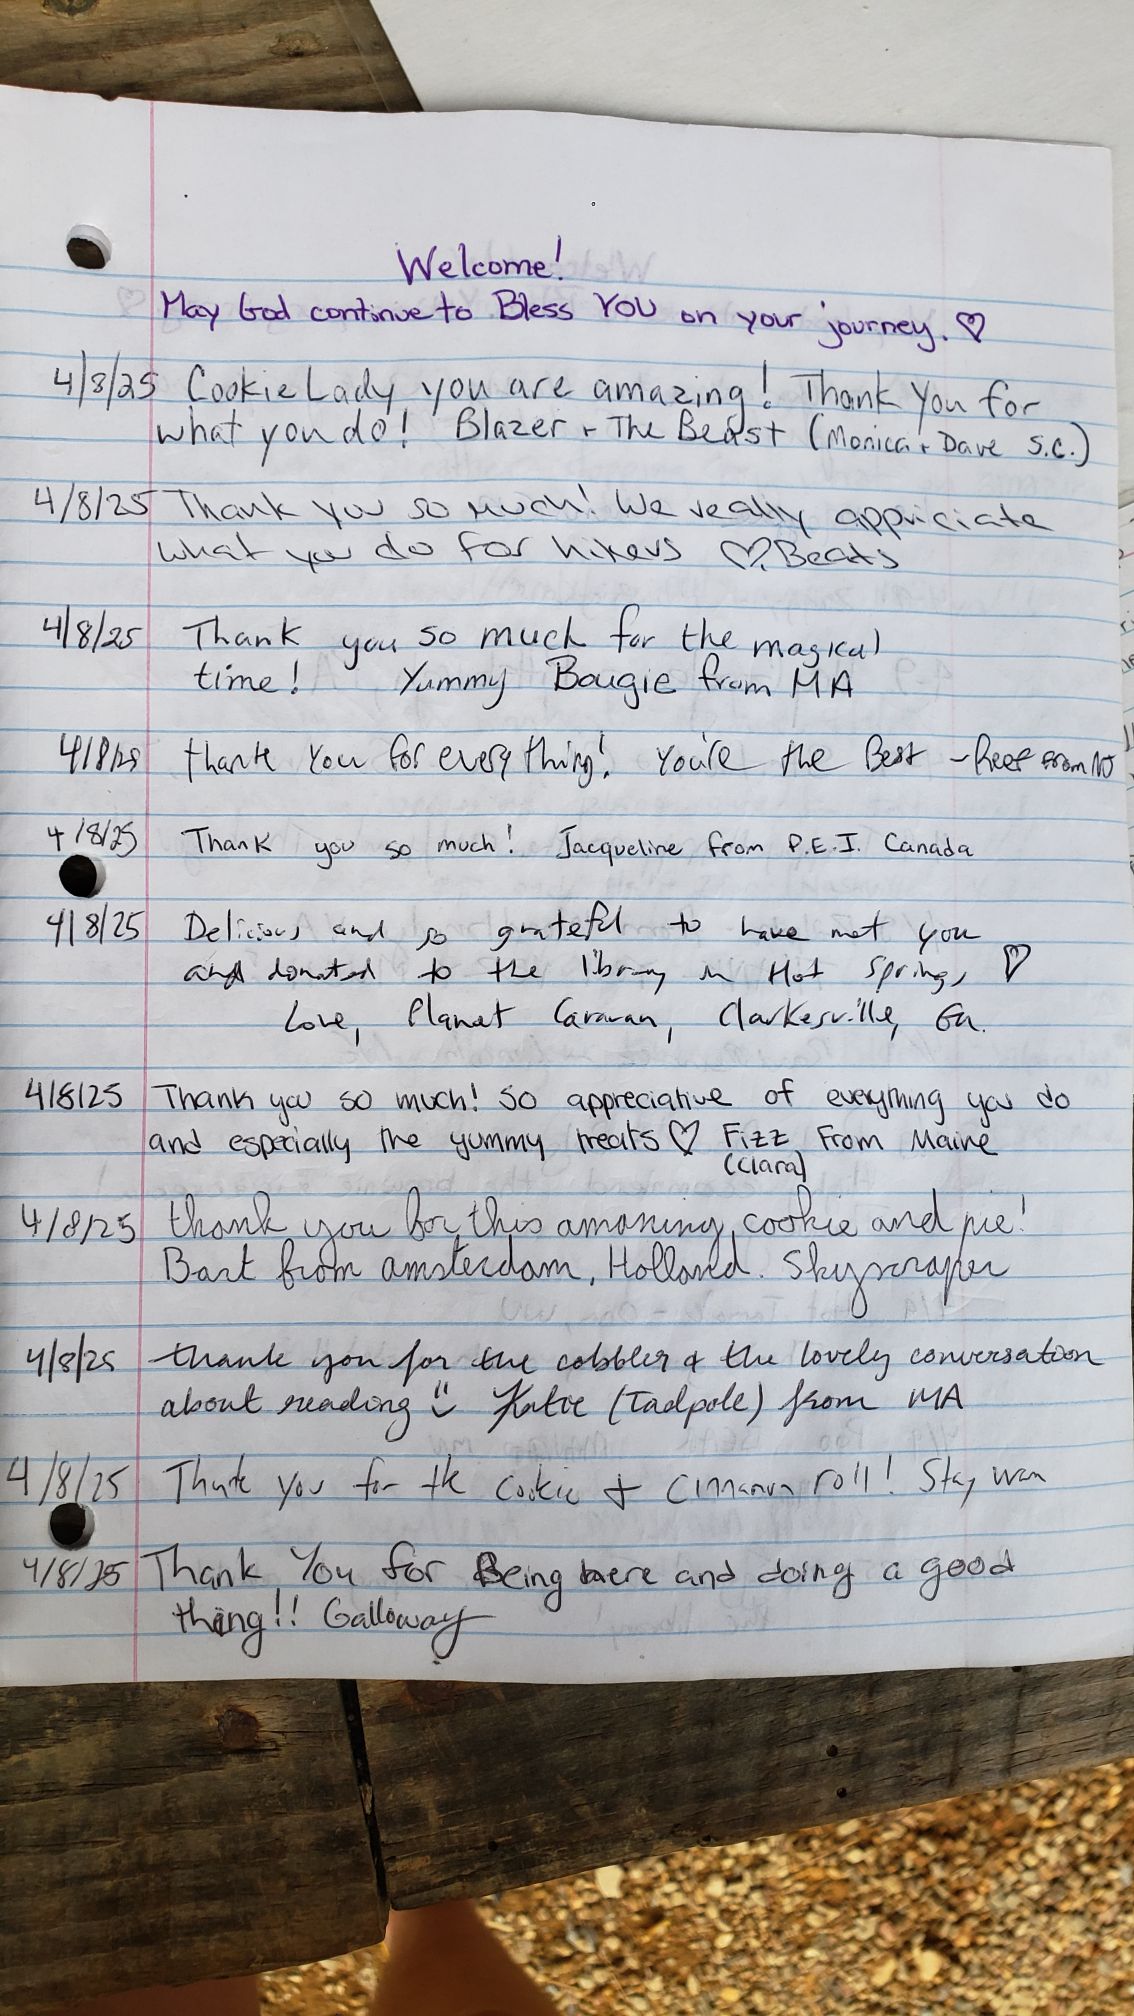 Welcome!
May God continue to Bless YOU on your journey. ♡
4/8/25 Cookie Lady you are amazing! Thank You for
what you do! Blazer + The Beast (Monica + Dave S.C.)
4/8/25 Thank you so much! We really appriciate
what you do for hikers ♡, Beats
4/8/25 Thank you so much for the magical
time! Yummy Bougie from MA
4/8/25 thank You for everything! You're the Best - Reef from NJ
4/8/25 Thank you so much! Jacqueline from P.E.I. Canada
4/8/25 Delicious and so grateful to have met you
and donated to the library in Hot Springs ♡
Love, Planet Caravan, Clarkesville, Ga.
4/8/25 Thank you so much! So appreciative of everything you do
and especially the yummy treats ♡ Fizz From Maine
(Clara)
4/8/25 thank you for this amazing cookie and pie!
Bart from amsterdam, Holland. Skyscraper
4/8/25 thank you for the cobbler & the lovely conversation
about reading :) Katie (Tadpole) from MA
4/8/25 Thank you for the cookie + cinnamon roll! Stay
4/8/25 Thank You for Being here and doing a good
thing!! Galloway